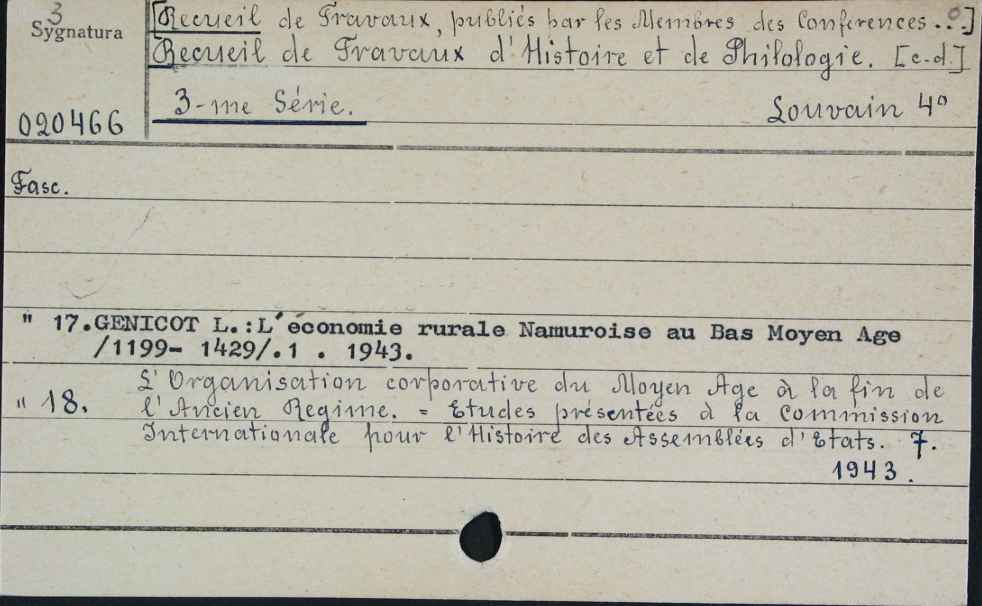 3
Sygnatura
020466
[Recueil de Travaux, publiés par les Membres des Conférences...]
Recueil de Travaux d'Histoire et de Philologie. [c.d.]
3-me Série.
Louvain 4°
Fasc.
" 17. GENICOT L.:L'économie rurale Namuroise au Bas Moyen Age
/1199- 1429/.1 . 1943.
" 18. L'Organisation corporative du Moyen Age à la fin de
l'Ancien Regime. = Etudes présentées à la Commission
Internationale pour l'Histoire des Assemblées d'Etats. 7.
1943.